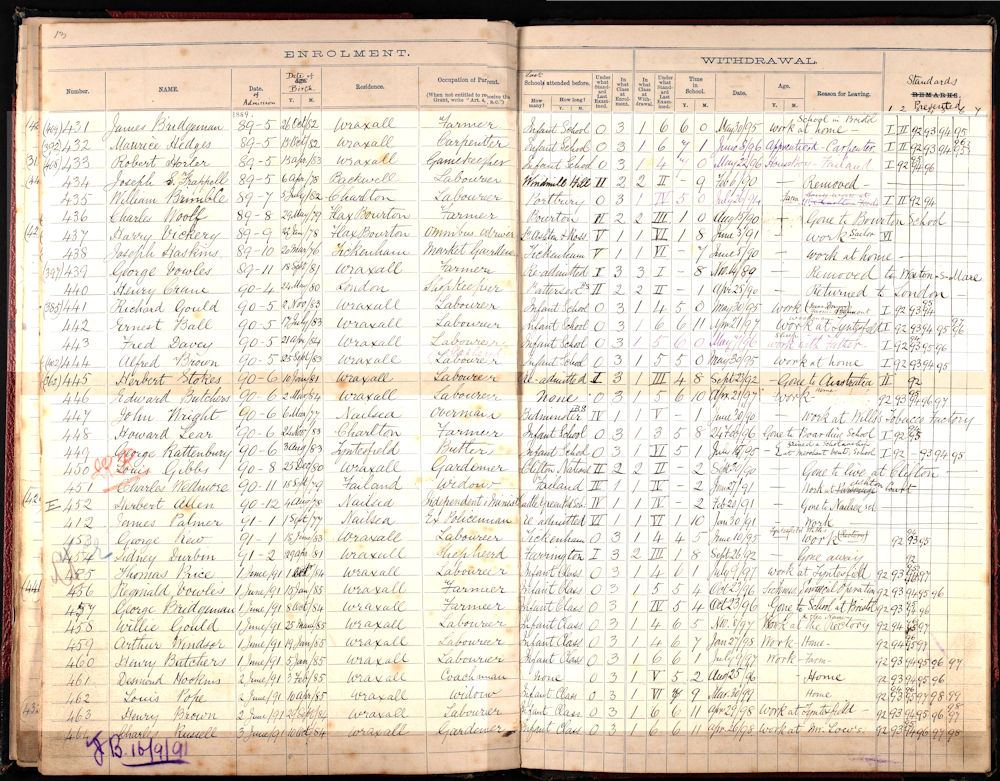 13
ENROLMENT.
WITHDRAWAL.
Number. NAME. Date. of Admission Date of Birth Y. M. Residence. Occupation of Parent. (When not entitled to receive the Grant, write "Art. 4, N.C.") Last Schools attended before. How many? How long? Y. M. Under what Standard Last Examined. In what Class at Enrolment. In what Class at Withdrawal. Under what Standard Last Examined. Time in School. Y. M. Date. Age. Y. M. Reason for Leaving. Standards REMARKS. Presented
1889
431 James Bridgeman 89-5 26 Oct/82 Wraxall Farmer Infant School 0 3 1 6 6 0 May 30/95 Work at home School in Bristol I II 92 93 94 95
432 Maurice Hedges 89-5 13 Oct/82 Wraxall Carpenter Infant School 0 3 1 6 7 1 June 8/96 Apprenticed - Carpenter I II 92 93 94 95
433 Robert Horler 89-5 13 Apr/83 Wraxall Gamekeeper Infant School 0 3 1 4 7 0 May 22/96 Failand I 92 94 96
434 Joseph S. Frappell 89-5 6 Apr/78 Backwell Labourer Windmill Hill II 2 2 II - 9 Feb 6/90 - Removed -
435 William Brimble 89-7 3 July/82 Charlton Labourer Portbury 0 3 1 IV 5 0 July 24/94 Farm I II 92 94
436 Charles Wooll 89-8 29 May/79 Flax Bourton Farmer Bourton II 2 2 III 1 0 Aug 19/90 - Gone to Bourton School
437 Harry Vickery 89-9 22 Jan/78 Flax Bourton Omnibus driver V 1 1 VI 1 8 June 3/91 - Work Sailor VI
438 Joseph Haskins 89-10 20 Mar/76 Tickenham Market Gardener Tickenham V 1 1 VI - 7 June 8/90 - Work at home -
(397) 439 George Vowles 89-11 18 Sept/81 Wraxall Farmer Re-admitted I 3 3 I - 8 Nov 4/89 - Removed to Weston-S-Mare
440 Henry Crane 90-4 24 May/80 London Shopkeeper Battersea BS II 2 2 - - 1 Apr 25/90 - Returned to London -
(385) 441 Richard Gould 90-5 2 Nov/83 Wraxall Labourer Infant School 0 3 1 4 5 0 May 30/95 Work I 92 93 94 95
442 Ernest Ball 90-5 17 July/83 Wraxall Labourer Infant School 0 3 1 6 6 11 Apr 21/97 Work at Tyntesfield I 92 93 94 95 96 97
443 Fred Davey 90-5 21 Apr/84 Wraxall Labourer Infant School 0 3 1 5 6 0 May 7/96 Work with Father I 92 93 95 96
(402) 444 Alfred Brown 90-5 25 Sept/83 Wraxall Labourer Infant School 0 3 5 5 0 May 30/95 Work at home I 92 93 94 95
(362) 445 Herbert Stokes 90-6 10 Jan/81 Wraxall Labourer Re-admitted I 3 III 4 8 Sept 27/92 - Gone to Australia II 92
446 Edward Butchers 90-6 2 Mar/84 Wraxall Labourer None 0 3 1 5 6 10 Apr 21/97 Work - Home 92 93 94 96 97
447 John Wright 90-6 6 Mar/77 Nailsea Overman Bedminster BS IV 1 1 V - 1 June 30/90 - Work at Wills's Tobacco Factory
448 Howard Lear 90-6 24 Nov/83 Charlton Farmer Infant School 0 3 3 5 8 24 Feb/96 Gone to Boarding School I 92 95
449 George Rattenbury 90-6 3 Aug/83 Tyntesfield Butler Infant School 0 3 5 5 1 June 14/95 - Gained a Scholarship - Ent. Merchant Vent. School I - 93 94 95
450 Louis Gibbs 90-8 25 Dec/80 Wraxall Gardener Clifton National II 2 2 II - 2 Sept 20/90 - Gone to live at Clifton -
451 Charles Wedmore 90-11 15 Sept/79 Failand Widow Failand III 1 1 II - 2 Jan 27/91 - Work at Court
452 Herbert Allen 90-12 4 Aug/78 Nailsea Independent Minister IV 1 1 IV - 2 Feb 23/91 - Gone to Nailsea Sch
412 James Palmer 91-1 1 Sept/77 Nailsea Ex Policeman Re admitted VI 1 1 VI 1 10 Jan 30/91 - Work
453 George Rew 91-1 18 June/83 Wraxall Labourer Tickenham 0 3 1 4 4 5 June 10/95 Work (Rectory) 92 93 95
454 Sidney Durbin 91-2 29 Apr/81 Wraxall Shepherd Farrington I 3 2 III 1 8 Sept 26/92 - Gone away 92
455 Thomas Price 1 June/91 Oct/84 Wraxall Labourer Infant Class 0 3 1 4 6 1 July 9/97 Work at Tyntesfield 92 93 96 97
456 Reginald Vowles 1 June/91 15 Jan/85 Wraxall Farmer Infant Class 0 3 1 5 5 4 Oct 23/96 92 93 94 95 96
457 George Bridgeman 1 June/91 8 Oct/84 Wraxall Farmer Infant Class 0 3 1 IV 5 4 Oct 23/96 Gone to School at Bristol 92 93 96
458 Willie Gould 1 June/91 25 Mar/85 Wraxall Labourer Infant Class 0 3 1 4 6 5 Nov 8/97 Work at the Rectory 92 94 97
459 Arthur Windsor 1 June/91 19 Jan/85 Wraxall Labourer Infant Class 0 3 4 6 7 Jan 27/98 Work - Home - 92 94 95 97
460 Henry Butchers 1 June/91 5 Jan/85 Wraxall Labourer Infant Class 0 3 1 6 6 1 July 9/97 Work - Farm - 92 93 94 95 96 97
461 Desmond Hookins 2 June/91 3 Feb/85 Wraxall Coachman None 0 3 1 V 5 2 Aug 25/96 - Home 92 93 94 95 96
462 Louis Pope 2 June/91 10 Apr/85 Wraxall Widow Infant Class 0 3 1 VI 7 9 Mar 30/99 Home 92 93 95 97 98 99
463 Henry Brown 2 June/91 29 Sept/84 Wraxall Labourer Infant Class 0 3 1 6 6 11 Apr 29/98 Work at Tyntesfield - 92 93 94 95 96 97 98
464 Charly Russell 3 June/91 10 Oct/84 Wraxall Gardener Infant Class 0 3 1 6 6 11 Apr 26/98 Work at Mr. Low's. 92 93 94 96 97 98
JB 16/9/91